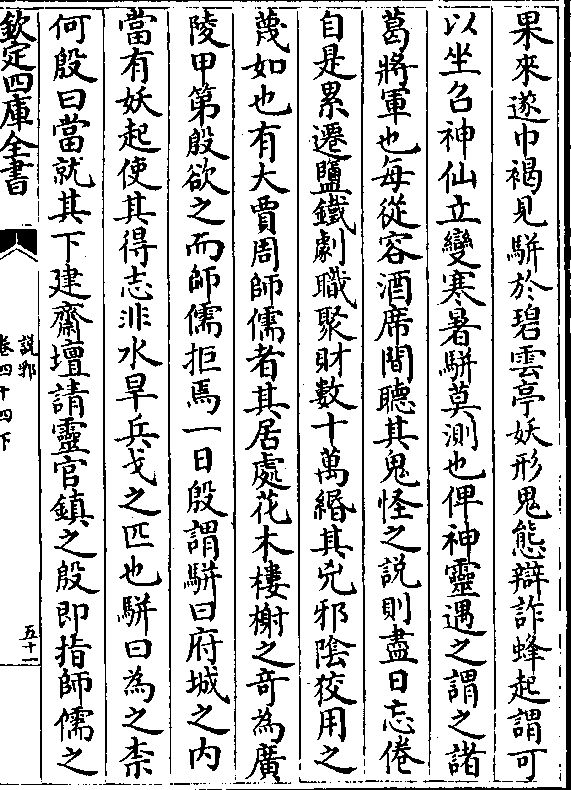 果來遂巾褐見駢於碧雲亭妖形鬼態辯詐蜂起謂可
以坐召神仙立變寒暑駢莫測也俾神靈遇之謂之諸
葛將軍也每從容酒席間聽其鬼怪之說則盡日忘倦
自是累遷鹽鐵劇職聚財數十萬緡其兇邪陰狡用之
蔑如也有大賈周師儒者其居處花木樓榭之奇為廣
陵甲第殷欲之而師儒拒焉一日殷謂駢曰府城之内
當有妖起使其得志非水旱兵戈之匹也駢曰為之柰
何殷曰當就其下建齋壇請靈官鎮之殷即指師儒之
欽定四庫全書
說郛
卷四十四下
五十一